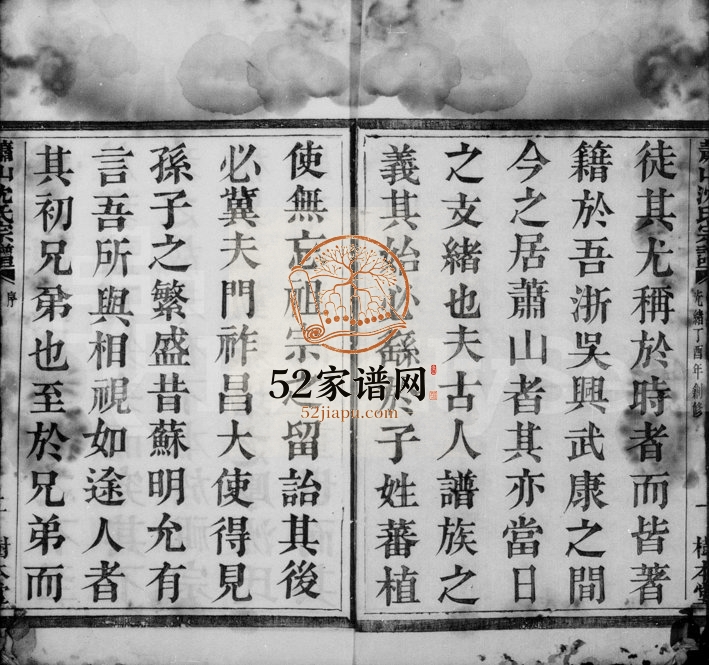 蕭山沈氏宗譜
光緒丁酉年創修
徒其尤稱於時者而皆著
籍於吾浙吳興武康之間
今之居蕭山者其亦當日
之支緒也夫古人譜族之
義其始必繇於子姓蕃植
使無忘祖宗之留詒其後
必冀夫門祚昌大使得見
孫子之繁盛昔蘇明允有
言吾所與相視如途人者
其初兄弟也至於兄弟而
蕭山沈氏宗譜
序
樹本堂
52家谱网
52jiapu.com